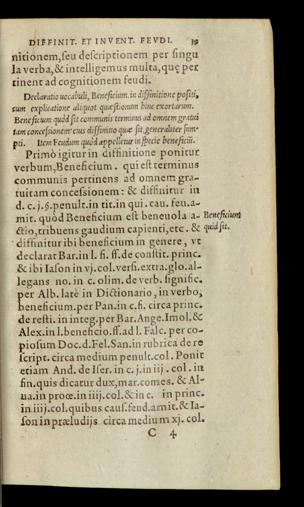 DIFFINIT. ET INVENT. FEVDI. 39
nitionem, seu descriptionem per singu
la verba, & intelligemus multa, quę per
tinent ad cognitionem feudi.
Declaratio uocabuli, Beneficium. in diffinitione positi,
cum explicatione aliquot quæstionum hinc exortarum.
Beneficium quòd sit communis terminus ad omnem gratui
tam concessionem: eius diffinitio quæ sit, generaliter sum-
pti. Item Feudum quòd appelletur in specie beneficii.
Primò igitur in diffinitione ponitur
verbum, Beneficium. qui est terminus
communis pertinens ad omnem gra-
tuitam concessionem: & diffinitur in
d. c. j. §. penult. in tit. in qui. cau. feu. a-
mit. quòd Beneficium est beneuola a-
ctio, tribuens gaudium capienti, etc. &
diffinitur ibi beneficium in genere, vt
declarat Bar. in l. fi. ff. de constit. princ.
& ibi Iason in vj. col. versi. extra. glo. al-
legans no. in c. olim. de verb. signific.
per Alb. latè in Dictionario, in verbo,
beneficium. per Pan. in c. fi. circa princ.
de resti. in integ. per Bar. Ange. Imol. &
Alex. in l. beneficio. ff. ad l. Falc. per co-
piosum Doc. d. Fel. San. in rubrica de re
script. circa medium penult. col. Ponit
etiam And. de Iser. in c. j. in iij. col. in
fin. quis dicatur dux, mar. comes. & Al-
ua. in proœ. in iiij. col. & in c. in princ.
in iiij. col. quibus caus. feud. amit. & Ia-
son in præludijs circa medium xj. col.
Beneficium
quid sit.
C 4